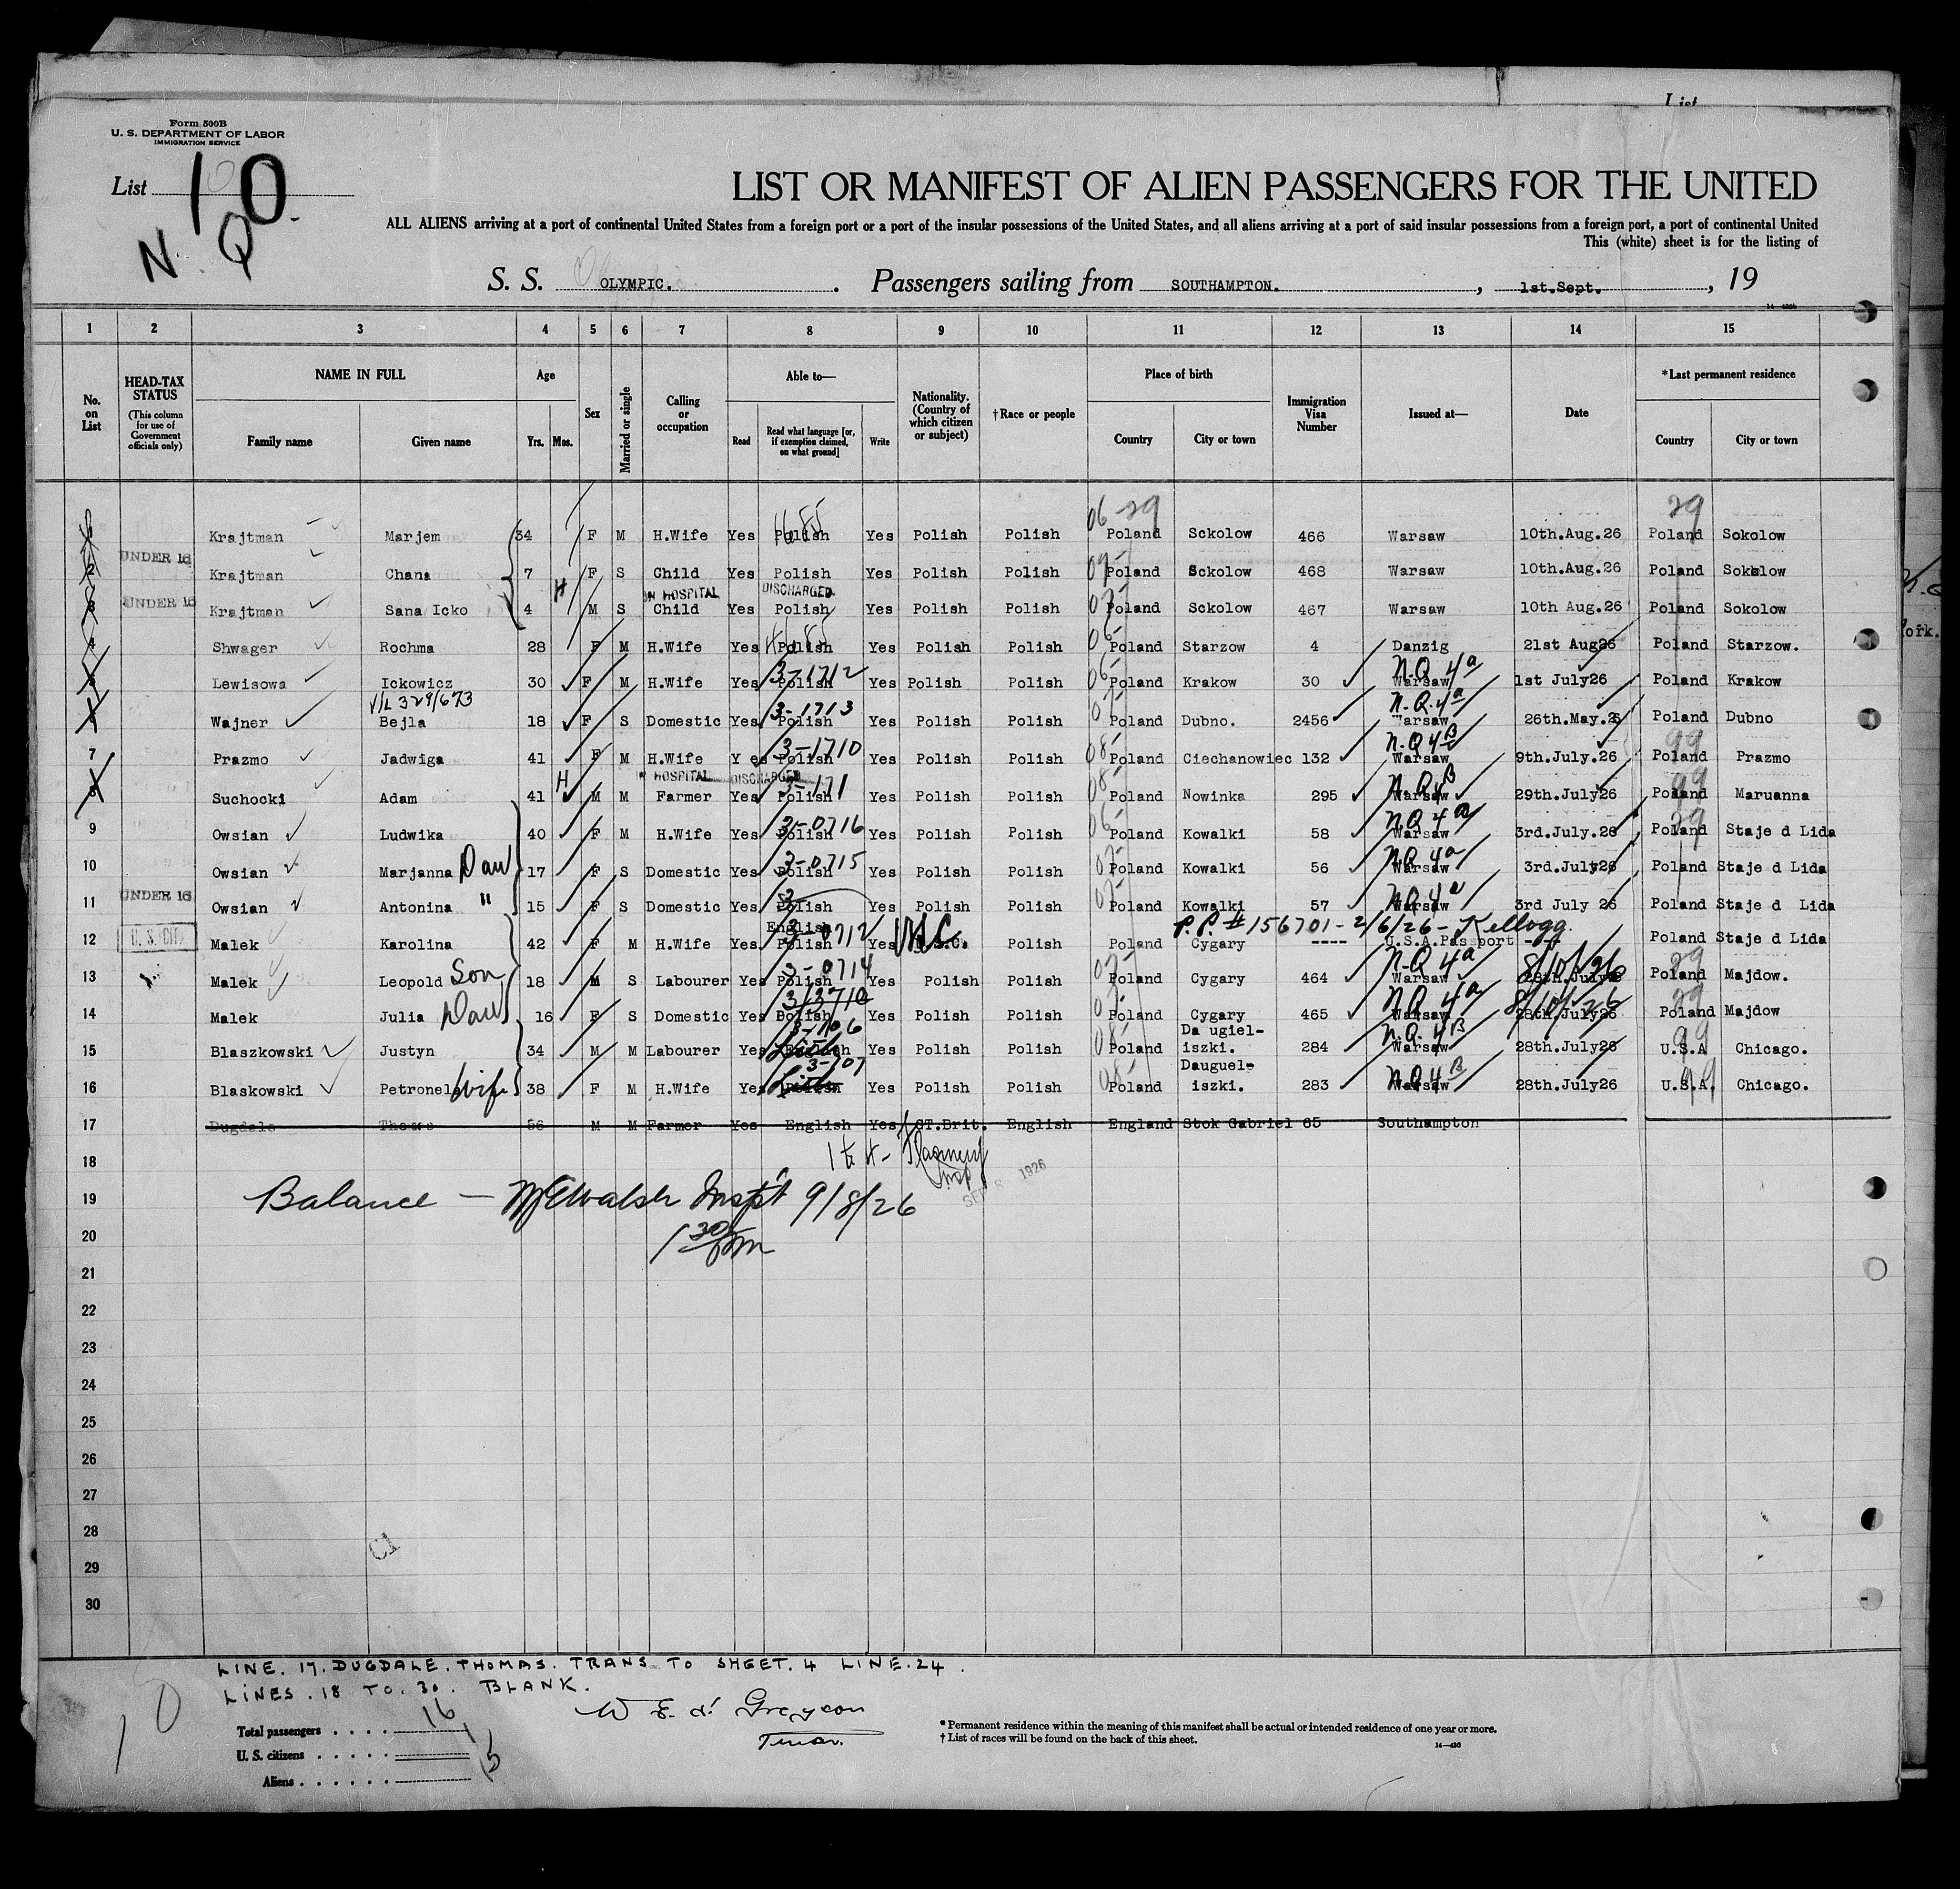 List
Form 500B
U. S. DEPARTMENT OF LABOR
IMMIGRATION SERVICE
List 10
N. Q.
LIST OR MANIFEST OF ALIEN PASSENGERS FOR THE UNITED
ALL ALIENS arriving at a port of continental United States from a foreign port or a port of the insular possessions of the United States, and all aliens arriving at a port of said insular possessions from a foreign port, a port of continental United
This (white) sheet is for the listing of
S. S. OLYMPIC. Passengers sailing from SOUTHAMPTON. , 1st.Sept. , 19
1 2 3 4 5 6 7 8 9 10 11 12 13 14 15
No. on List
HEAD-TAX STATUS (This column for use of Government officials only)
NAME IN FULL Family name Given name
Age Yrs. Mos.
Sex
Married or single
Calling or occupation
Able to— Read Read what language [or, if exemption claimed, on what ground] Write
Nationality. (Country of which citizen or subject)
†Race or people
Place of birth Country City or town
Immigration Visa Number
Issued at—
Date
*Last permanent residence Country City or town
06 29 29
1 Krajtman Marjem 34 F M H.Wife Yes Polish Yes Polish Polish Poland Sckolow 466 Warsaw 10th.Aug.26 Poland Sokolow
UNDER 16
2 Krajtman Chana 7 F S Child Yes Polish Yes Polish Polish Poland Sckolow 468 Warsaw 10th.Aug.26 Poland Sokolow
H IN HOSPITAL DISCHARGED
3 UNDER 16 Krajtman Sana Icko 4 M S Child Yes Polish Yes Polish Polish Poland Sckolow 467 Warsaw 10th Aug.26 Poland Sokolow
4 Shwager Rochma 28 F M H.Wife Yes Polish Yes Polish Polish Poland Starzow 4 Danzig 21st Aug26 Poland Starzow.
3-1712 N.Q.4a
5 Lewisowa Ickowicz 30 F M H.Wife Yes Polish Yes Polish Polish Poland Krakow 30 Warsaw 1st July26 Poland Krakow
V/L 329/673 3-1713 N.Q.4a
6 Wajner Bejla 18 F S Domestic Yes Polish Yes Polish Polish Poland Dubno. 2456 Warsaw 26th.May.26 Poland Dubno
3-1710 N.Q 4B 99
7 Prazmo Jadwiga 41 F M H.Wife Yes Polish Yes Polish Polish Poland Ciechanowiec 132 Warsaw 9th.July.26 Poland Prazmo
H HOSPITAL DISCHARGED 3-171 N.Q.B 99
8 Suchocki Adam 41 M M Farmer Yes Polish Yes Polish Polish Poland Nowinka 295 Warsaw 29th.July26 Poland Maruanna
3-0716 N.Q 4a 29
9 Owsian Ludwika 40 F M H.Wife Yes Polish Yes Polish Polish Poland Kowalki 58 Warsaw 3rd.July.26 Poland Staje d Lida
3-0715 N.Q 4a
10 Owsian Marjanna Dau 17 F S Domestic Yes Polish Yes Polish Polish Poland Kowalki 56 Warsaw 3rd.July26 Poland Staje d Lida
UNDER 16 N.Q 4a
11 Owsian Antonina " 15 F S Domestic Yes Polish Yes Polish Polish Poland Kowalki 57 Warsaw 3rd July 26 Poland Staje d Lida
English P.P.# 156701-2/6/26 - Kellogg
12 U. S. CIT. Malek Karolina 42 F M H.Wife Yes Polish 3-0712 Yes U.S.C. Polish Poland Cygary ---- U.S.A.Passport Poland Staje d Lida
3-0714 N.Q 4a 29
13 Malek Leopold Son 18 M S Labourer Yes Polish Yes Polish Polish Poland Cygary 464 Warsaw 28th.July26 Poland Majdow.
N.Q 4a 29
14 Malek Julia Dau 16 F S Domestic Yes Polish Yes Polish Polish Poland Cygary 465 Warsaw 28th.July26 Poland Majdow
3-706 N.Q.4B 99
15 Blaszkowski Justyn 34 M M Labourer Yes Lith Yes Polish Polish Poland Da ugiel-iszki. 284 Warsaw 28th.July26 U.S.A Chicago.
3-707 N.Q 4B 99
16 Blaskowski Petronel Wife 38 F M H.Wife Yes Lith Polish Yes Polish Polish Poland Dauguel-iszki. 283 Warsaw 28th.July26 U.S.A. Chicago.
17 Dugdale Thomas 56 M M Farmer Yes English Yes GT.Brit. English England Stok Gabriel 65 Southampton
18
1926
19 Balance — Walsh Inspt 9/8/26
20 1 30 pm
21
22
23
24
25
26
27
28
29
30
LINE. 17. DUGDALE. THOMAS. TRANS TO SHEET. 4 LINE. 24.
LINES. 18 TO. 30. BLANK.
10
Total passengers . . . . 16
U. S. citizens . . . . . 1
Aliens . . . . . . 15
* Permanent residence within the meaning of this manifest shall be actual or intended residence of one year or more.
† List of races will be found on the back of this sheet.
14—430